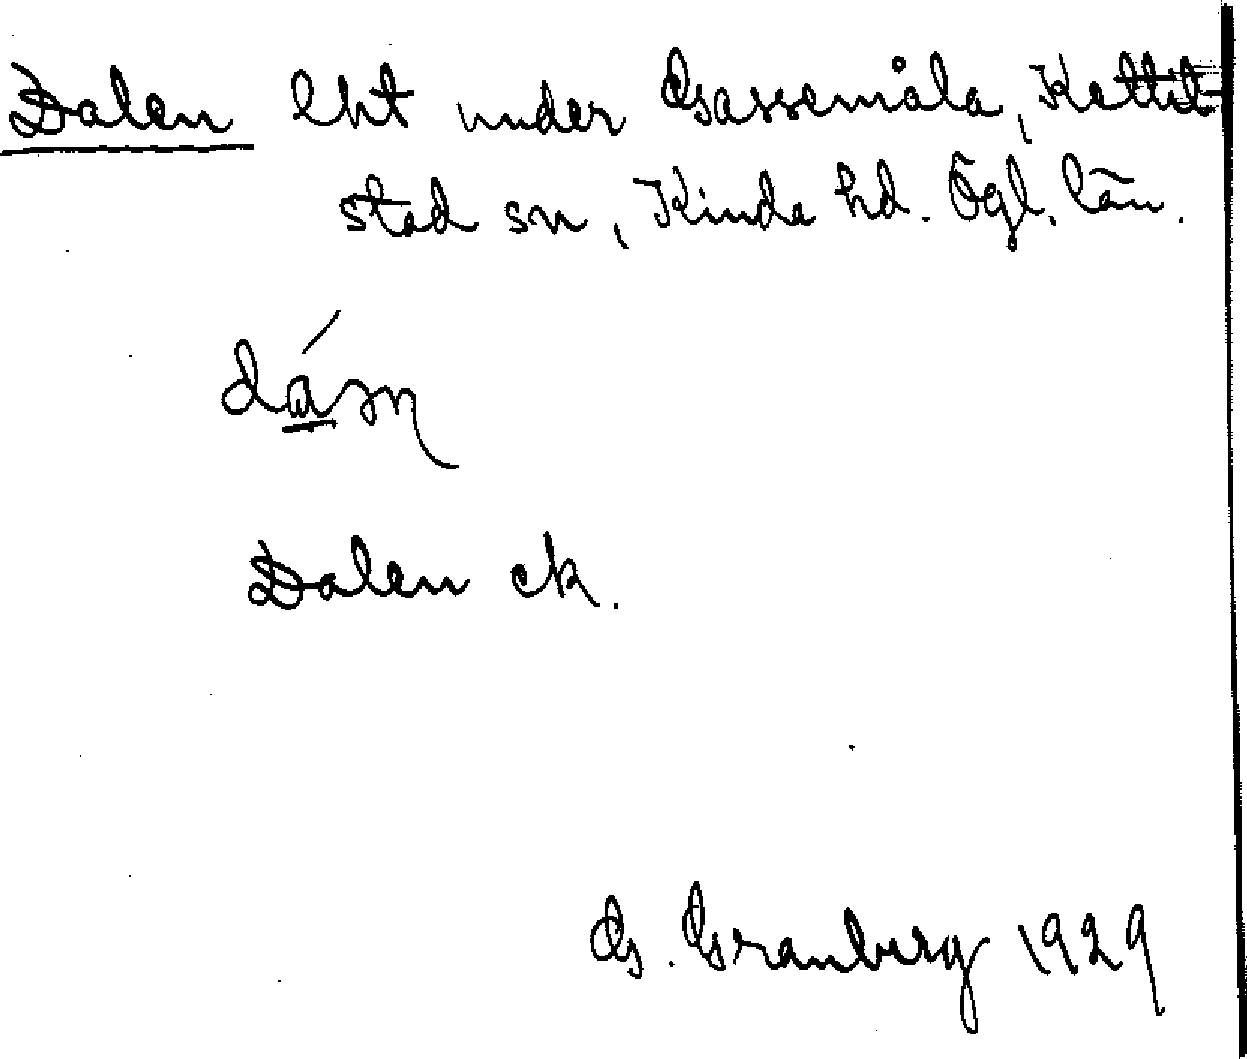 Dalen lht under Gassemåla, Kettil-
stad sn, Kinda hd. Ögl. län.
Dalen ek.
G. Granberg 1929